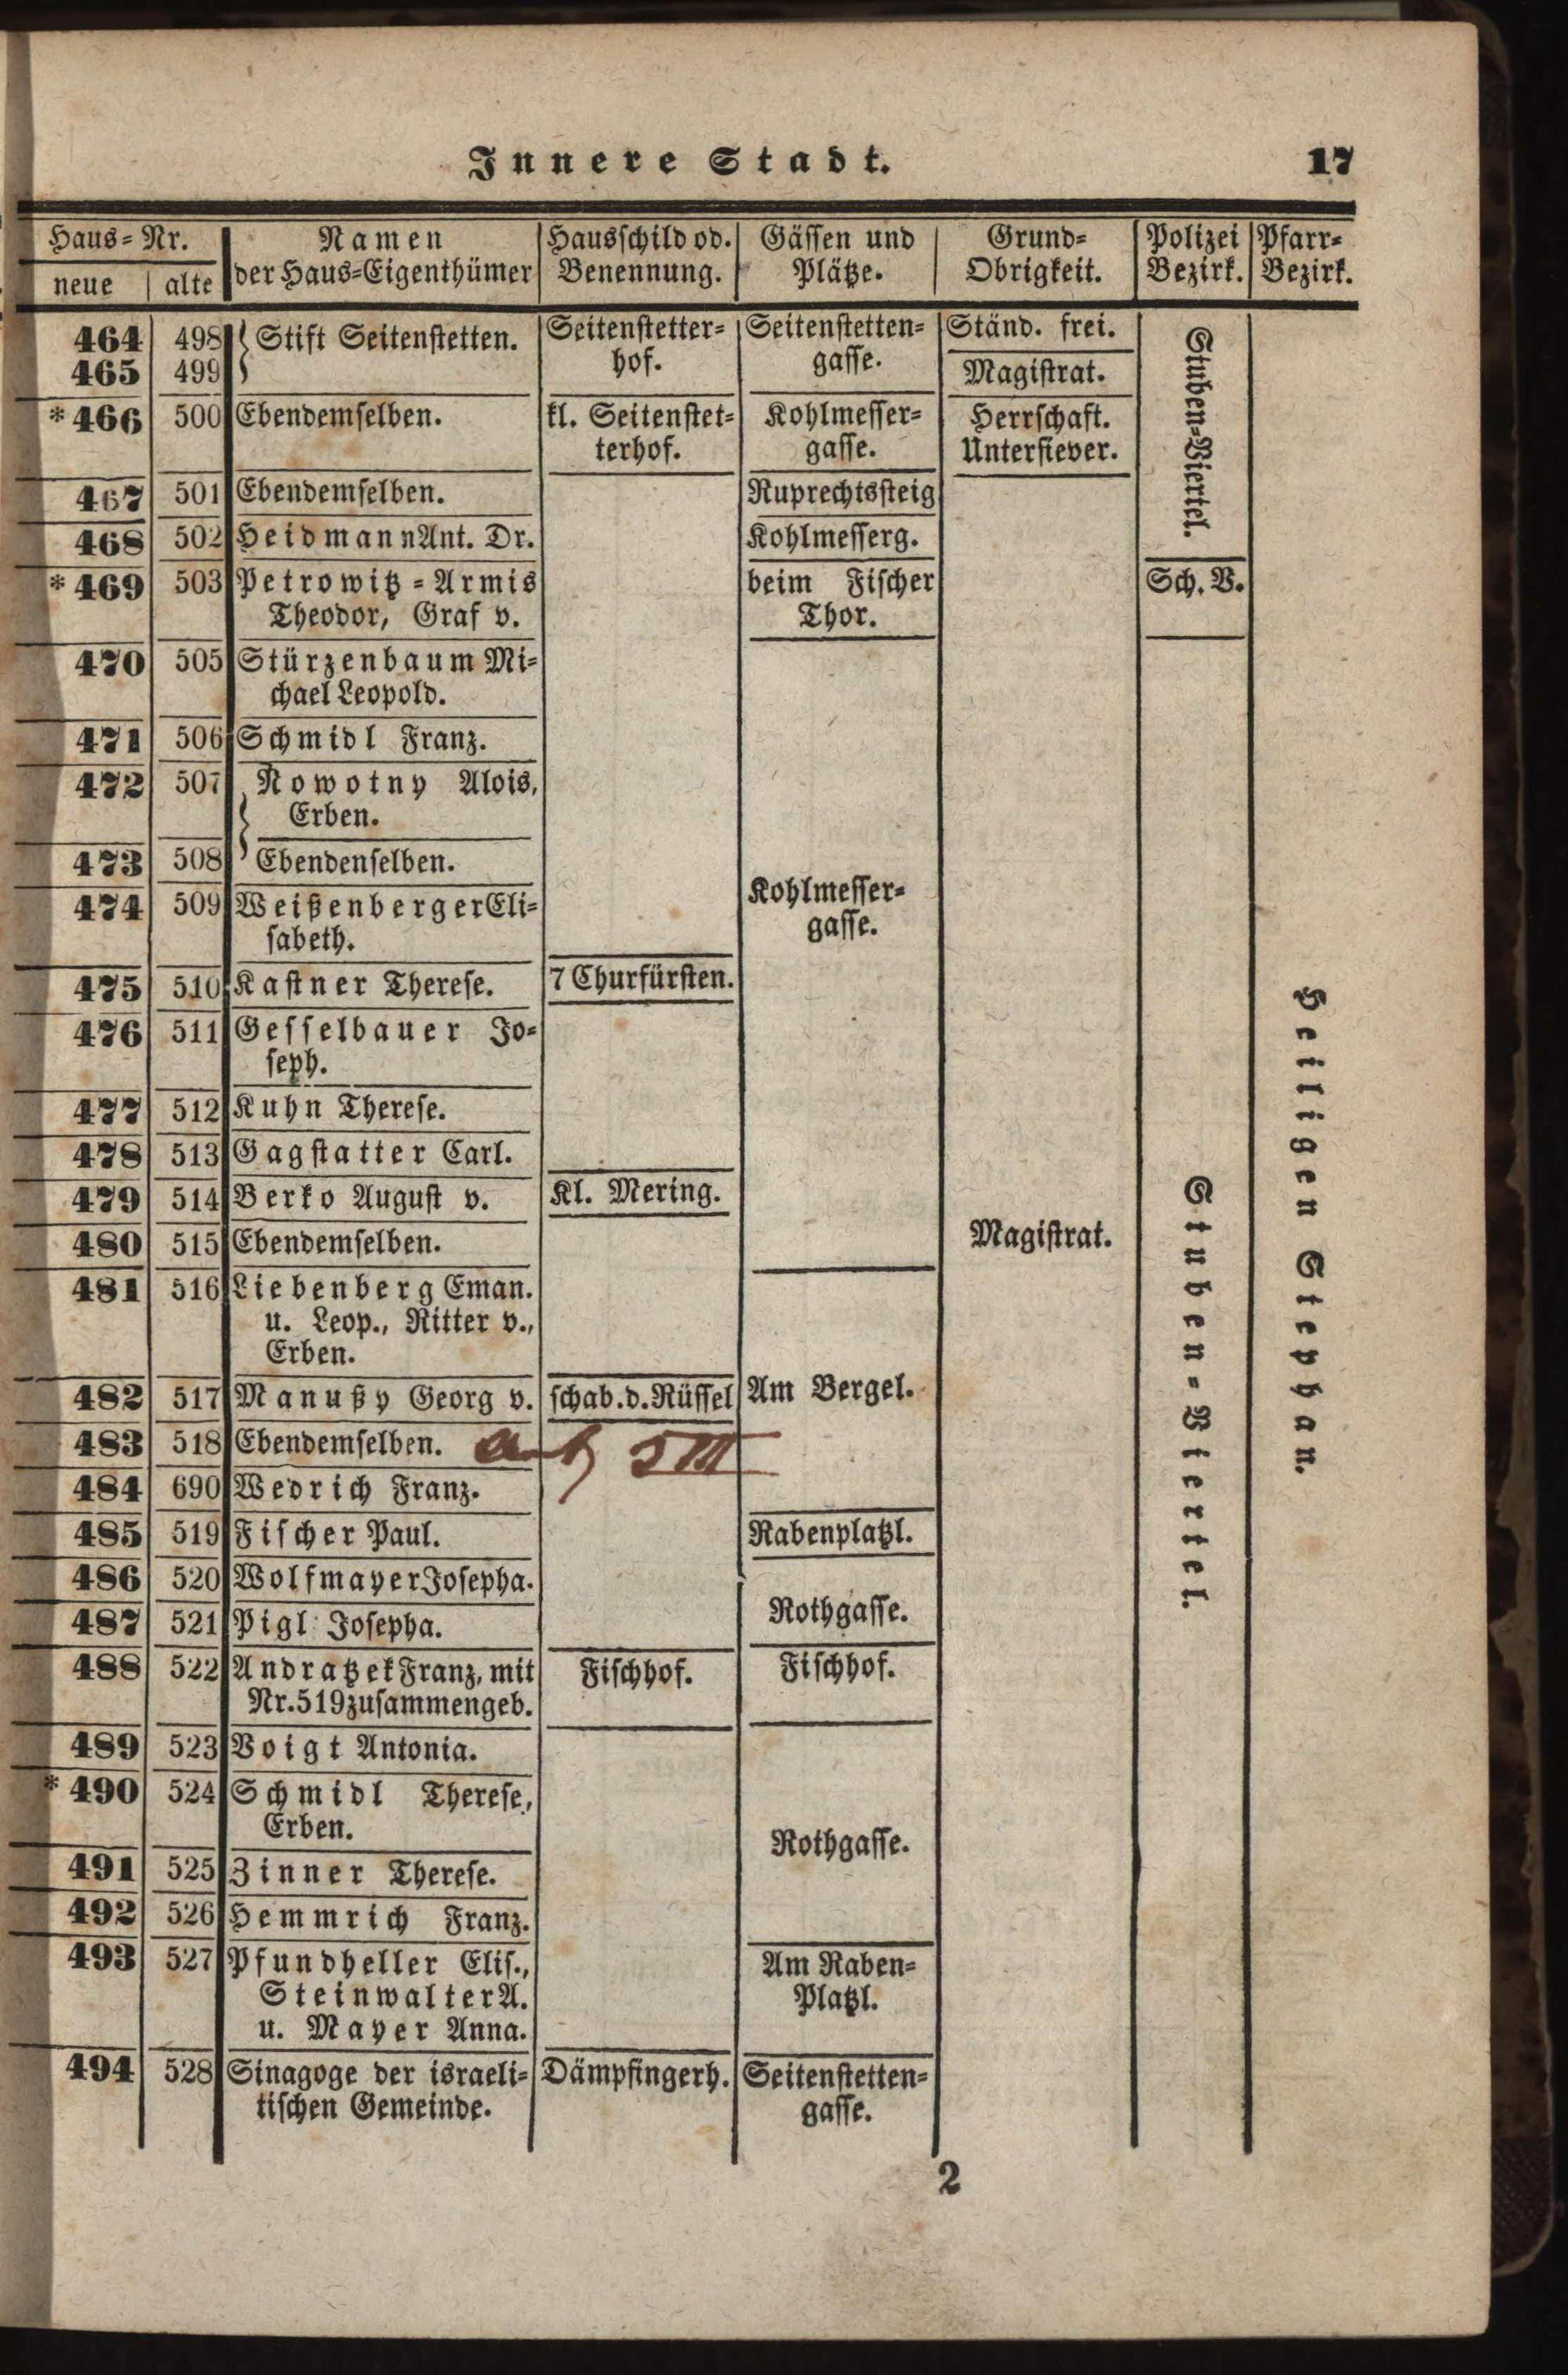 Innere Stadt. 17
Haus-Nr. Namen Hausschild od. Gässen und Grund- Polizei Pfarr-
neue alte der Haus-Eigenthümer Benennung. Plätze. Obrigkeit. Bezirk. Bezirk.
464 498 Stift Seitenstetten. Seitenstetter- Seitenstetten- Ständ. frei. Stuben-Viertel.
465 499 hof. gasse. Magistrat.
*466 500 Ebendemselben. kl. Seitenstet- Kohlmesser- Herrschaft.
terhof. gasse. Untersiever.
467 501 Ebendemselben. Ruprechtssteig
468 502 Heidmann Ant. Dr. Kohlmesserg.
*469 503 Petrowitz-Armis beim Fischer Sch. V.
Theodor, Graf v. Thor.
470 505 Stürzenbaum Mi-
chael Leopold.
471 506 Schmidl Franz.
472 507 Nowotny Alois,
Erben.
473 508 Ebendenselben.
474 509 Weißenberger Eli- Kohlmesser-
sabeth. gasse.
475 510 Kastner Therese. 7 Churfürsten.
476 511 Gesselbauer Jo-
seph.
477 512 Kuhn Therese.
478 513 Gagstatter Carl.
479 514 Berko August v. Kl. Mering.
480 515 Ebendemselben. Magistrat. Stuben-Viertel. Heiligen Stephan.
481 516 Liebenberg Eman.
u. Leop., Ritter v.,
Erben.
482 517 Manußy Georg v. schab. d. Rüssel Am Bergel.
483 518 Ebendemselben.
484 690 Wedrich Franz.
485 519 Fischer Paul. Rabenplatzl.
486 520 Wolfmayer Josepha.
487 521 Pigl Josepha. Rothgasse.
488 522 Andratzek Franz, mit Fischhof. Fischhof.
Nr. 519 zusammengeb.
489 523 Voigt Antonia.
*490 524 Schmidl Therese,
Erben. Rothgasse.
491 525 Zinner Therese.
492 526 Hemmrich Franz.
493 527 Pfundheller Elis., Am Raben-
Steinwalter A. Platzl.
u. Mayer Anna.
494 528 Sinagoge der israeli- Dämpfingerh. Seitenstetten-
tischen Gemeinde. gasse.
2